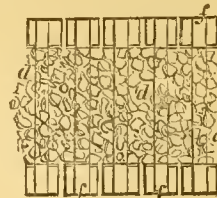 f
d d
f f